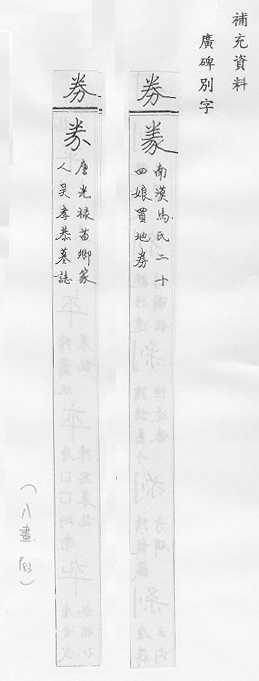 補充資料
廣碑別字
券
南漢馬氏二十
四娘買地券
券
唐光祿苗卿篆
人吳孝恭墓誌
（八畫